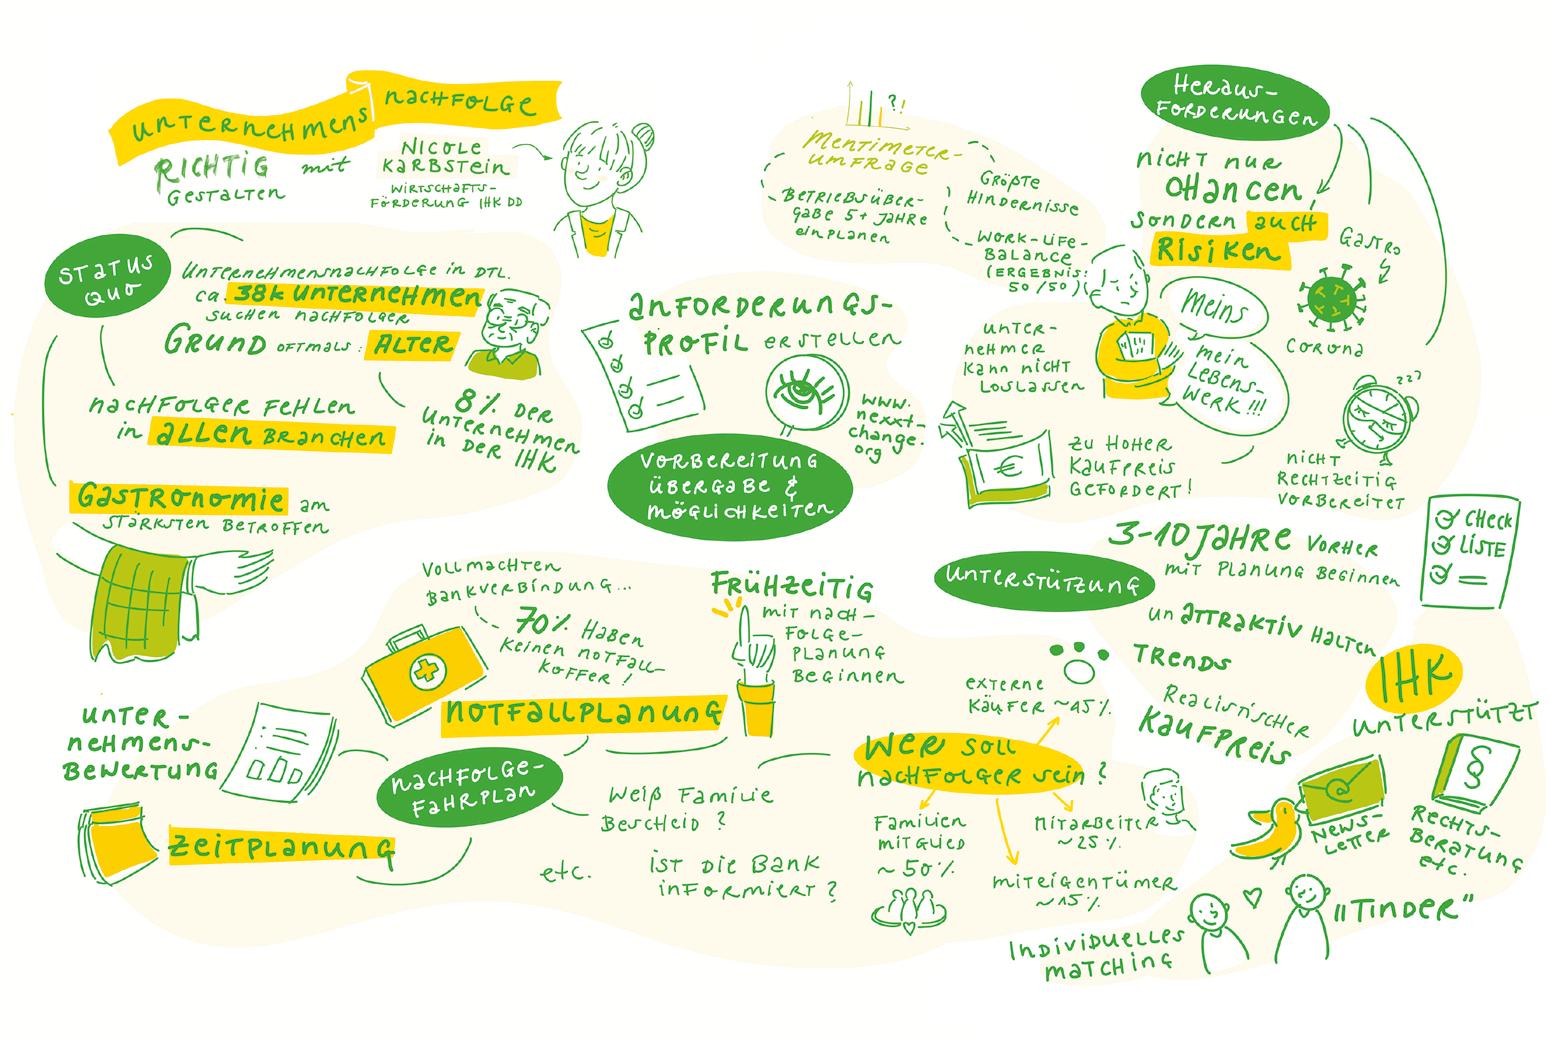 UNTERNEHMENS
NACHFOLGE
RICHTIG mit
GESTALTEN
NICOLE
KARBSTEIN
WIRTSCHAFTS-
FÖRDERUNG IHK DD
STATUS
QUO
UNTERNEHMENSNACHFOLGE in DTL.
ca. 38k UNTERNEHMEN
SUCHEN NACHFOLGER
GRUND OFTMALS: ALTER
NACHFOLGER FEHLEN
in ALLEN BRANCHEN
8% DER
UNTERNEHMEN
in DER IHK
GASTRONOMIE am
STÄRKSTEN BETROFFEN
ANFORDERUNGS-
PROFIL ERSTELLEN
www.
nexxt-
change.
org
VORBEREITUNG
ÜBERGABE &
MÖGLICHKEITEN
?!
MENTIMETER-
UMFRAGE
BETRIEBSÜBER-
GABE 5+ JAHRE
EINPLANEN
GRÖßTE
HINDERNISSE
WORK-LIFE-
BALANCE
(ERGEBNIS:
50/50)
HERAUS-
FORDERUNGEN
NICHT NUR
CHANCEN
SONDERN AUCH
RISIKEN
GASTRO
CORONA
UNTER-
NEHMER
KANN NICHT
LOSLASSEN
MEINS
MEIN
LEBENS-
WERK!!!
€
ZU HOHER
KAUFPREIS
GEFORDERT!
zzz
NICHT
RECHTZEITIG
VORBEREITET
UNTERSTÜTZUNG
3-10 JAHRE VORHER
MIT PLANUNG BEGINNEN
CHECK
LISTE
UN ATTRAKTIV HALTEN
TRENDS
REALISTISCHER
KAUFPREIS
IHK
UNTERSTÜTZT
NEWS-
LETTER
§
RECHTS-
BERATUNG
etc.
INDIVIDUELLES
MATCHING
"TINDER"
VOLLMACHTEN
BANKVERBINDUNG...
70% HABEN
KEINEN NOTFALL-
KOFFER!
NOTFALLPLANUNG
FRÜHZEITIG
MIT NACH-
FOLGE-
PLANUNG
BEGINNEN
UNTER-
NEHMENS-
BEWERTUNG
NACHFOLGE-
FAHRPLAN
ZEITPLANUNG
WEIß FAMILIE
BESCHEID?
etc.
IST DIE BANK
INFORMIERT?
WER SOLL
NACHFOLGER SEIN?
EXTERNE
KÄUFER ~15%
FAMILIEN
MITGLIED
~50%
MITARBEITER
~25%
MITEIGENTÜMER
~15%